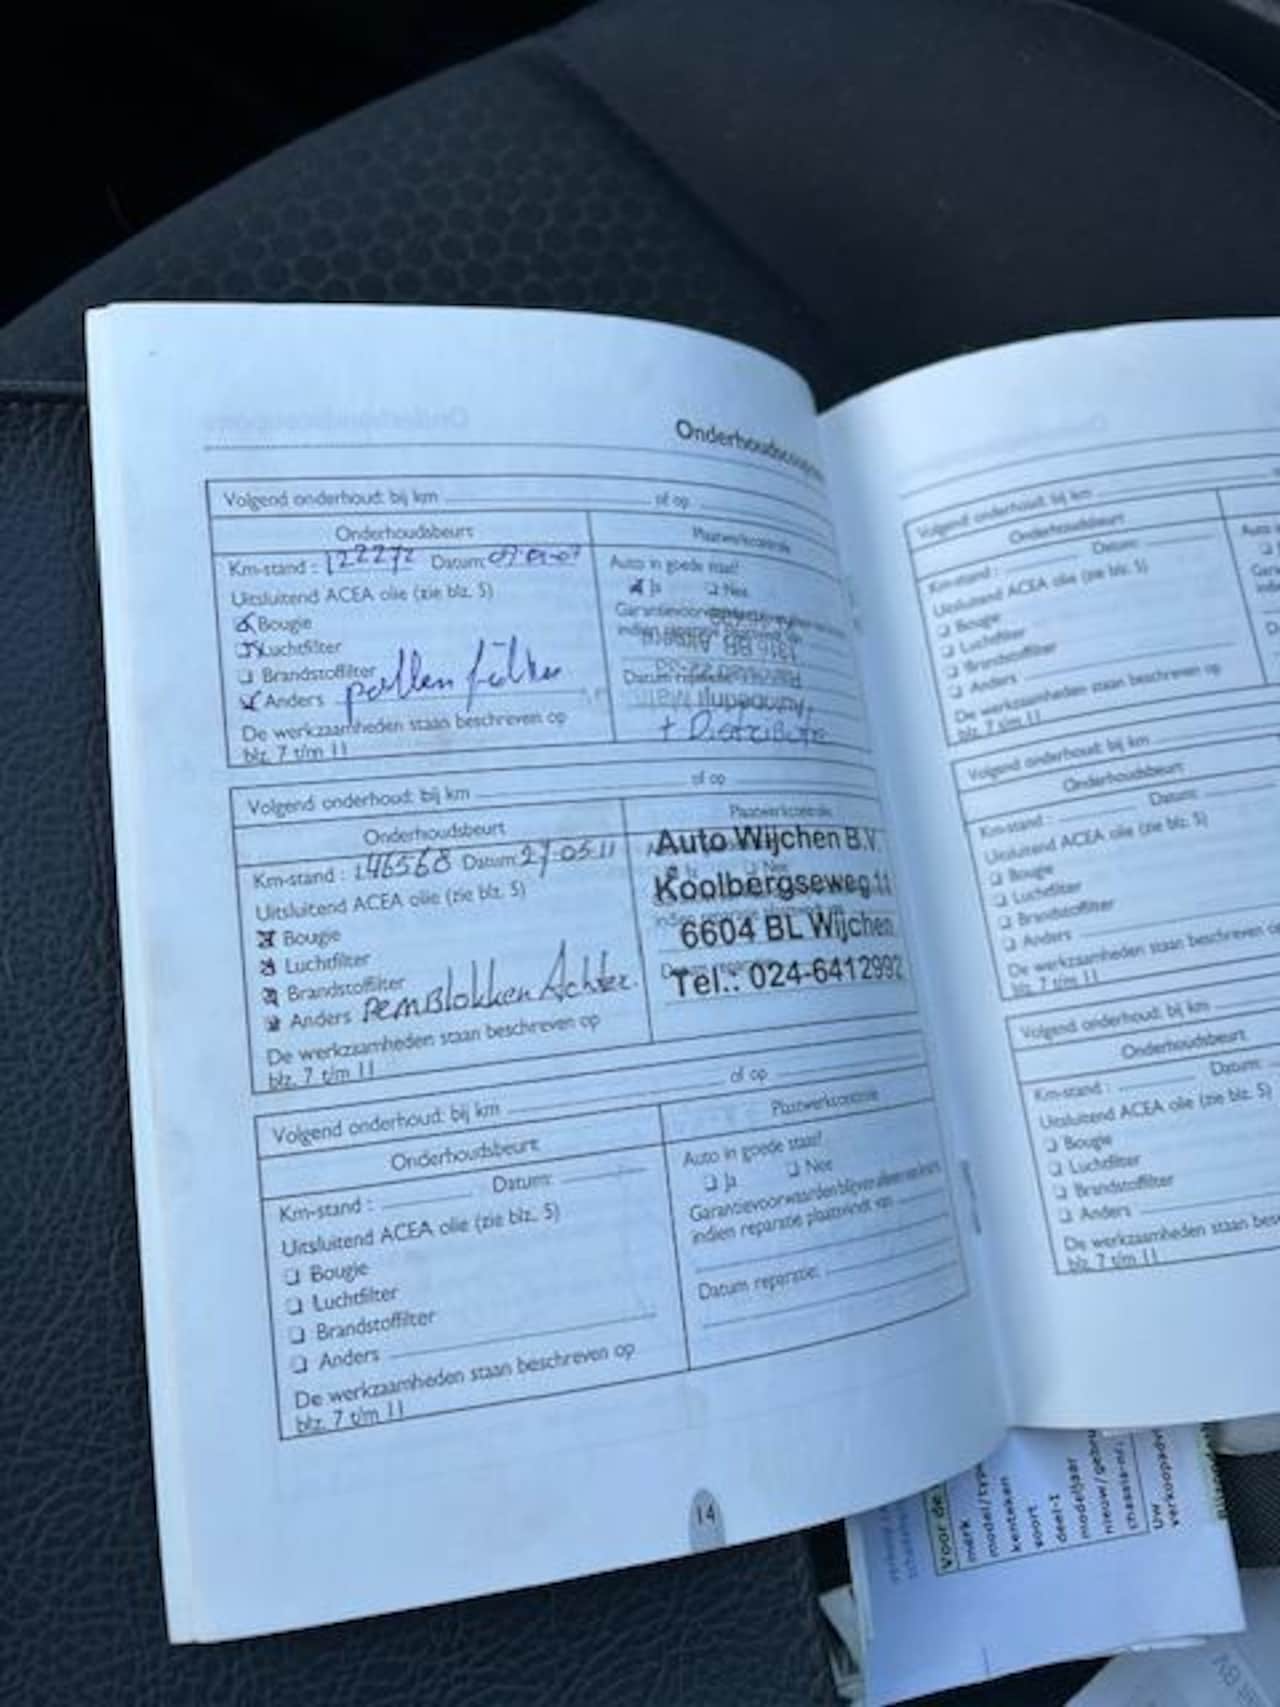 Onderhoudscoupons
Volgend onderhoud: bij km of op
Onderhoudsbeurt Plaatwerkcontrole
Km-stand : 122272 Datum:
Auto in goede staat?
Uitsluitend ACEA olie (zie blz. 5)
Ja Nee
Bougie
Luchtfilter
Brandstoffilter
Anders pollen filter
Datum reparatie:
+ Distributie
De werkzaamheden staan beschreven op
blz. 7 t/m 11
Volgend onderhoud: bij km of op
Onderhoudsbeurt Plaatwerkcontrole
Km-stand : 146568 Datum: 27-05-11
Uitsluitend ACEA olie (zie blz. 5)
Bougie
Luchtfilter
Brandstoffilter
Anders REMBLOKKEN Achter.
De werkzaamheden staan beschreven op
blz. 7 t/m 11
Auto Wijchen B.V.
Koolbergseweg 11
6604 BL Wijchen
Tel.: 024-6412992
Volgend onderhoud: bij km of op
Onderhoudsbeurt Plaatwerkcontrole
Km-stand : Datum:
Uitsluitend ACEA olie (zie blz. 5)
Bougie
Luchtfilter
Brandstoffilter
Anders
De werkzaamheden staan beschreven op
blz. 7 t/m 11
Auto in goede staat?
Ja Nee
Garantievoorwaarden blijven alleen van kracht
indien reparatie plaatsvindt van
Datum reparatie:
14
Volgend onderhoud: bij km
Onderhoudsbeurt
Km-stand : Datum:
Uitsluitend ACEA olie (zie blz. 5)
Bougie
Luchtfilter
Brandstoffilter
Anders
De werkzaamheden staan beschreven op
blz. 7 t/m 11
Volgend onderhoud: bij km
Onderhoudsbeurt
Km-stand : Datum:
Uitsluitend ACEA olie (zie blz. 5)
Bougie
Luchtfilter
Brandstoffilter
Anders
De werkzaamheden staan beschreven op
blz. 7 t/m 11
Volgend onderhoud: bij km
Onderhoudsbeurt
Km-stand : Datum:
Uitsluitend ACEA olie (zie blz. 5)
Bougie
Luchtfilter
Brandstoffilter
Anders
De werkzaamheden staan
blz. 7 t/m 11
Voor de
merk
model/type
kenteken
soort
deel-1
modeljaar
nieuw/gebru
chassis-nr.
Uw
verkoopadv